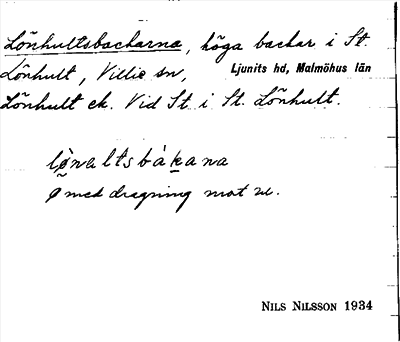 Lönhultsbackarna, höga backar i St.
Lönhult, Villie sn, Ljunits hd, Malmöhus län
Lönhult ek. Vid St. i St. Lönhult.
lø̰naltsbàkana
ø med dragning mot
NILS NILSSON 1934